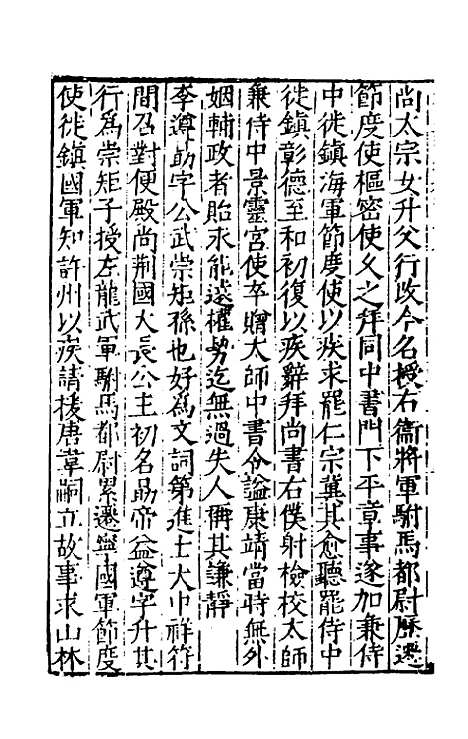 尚太宗女升父行改今名授右衞將軍駙馬都尉歷遷
節度使樞密使久之拜同中書門下平章事遂加兼侍
中徙鎮海軍節度使以疾求罷仁宗冀其愈聽罷侍中
徙鎮彰德至和初復以疾辭拜尚書右僕射檢校太師
兼侍中景靈宮使卒贈太師中書令諡康靖當時無外
姻輔政者貽永能遠權勢迄無過失人稱其謙靜
李遵勗字公武崇矩孫也好爲文詞第進士大中祥符
間召對便殿尚荆國大長公主初名勗帝益遵字升其
行爲崇矩子授左龍武軍駙馬都尉累遷寧國軍節度
使徙鎮國軍知許州以疾請援唐韋嗣立故事求山林